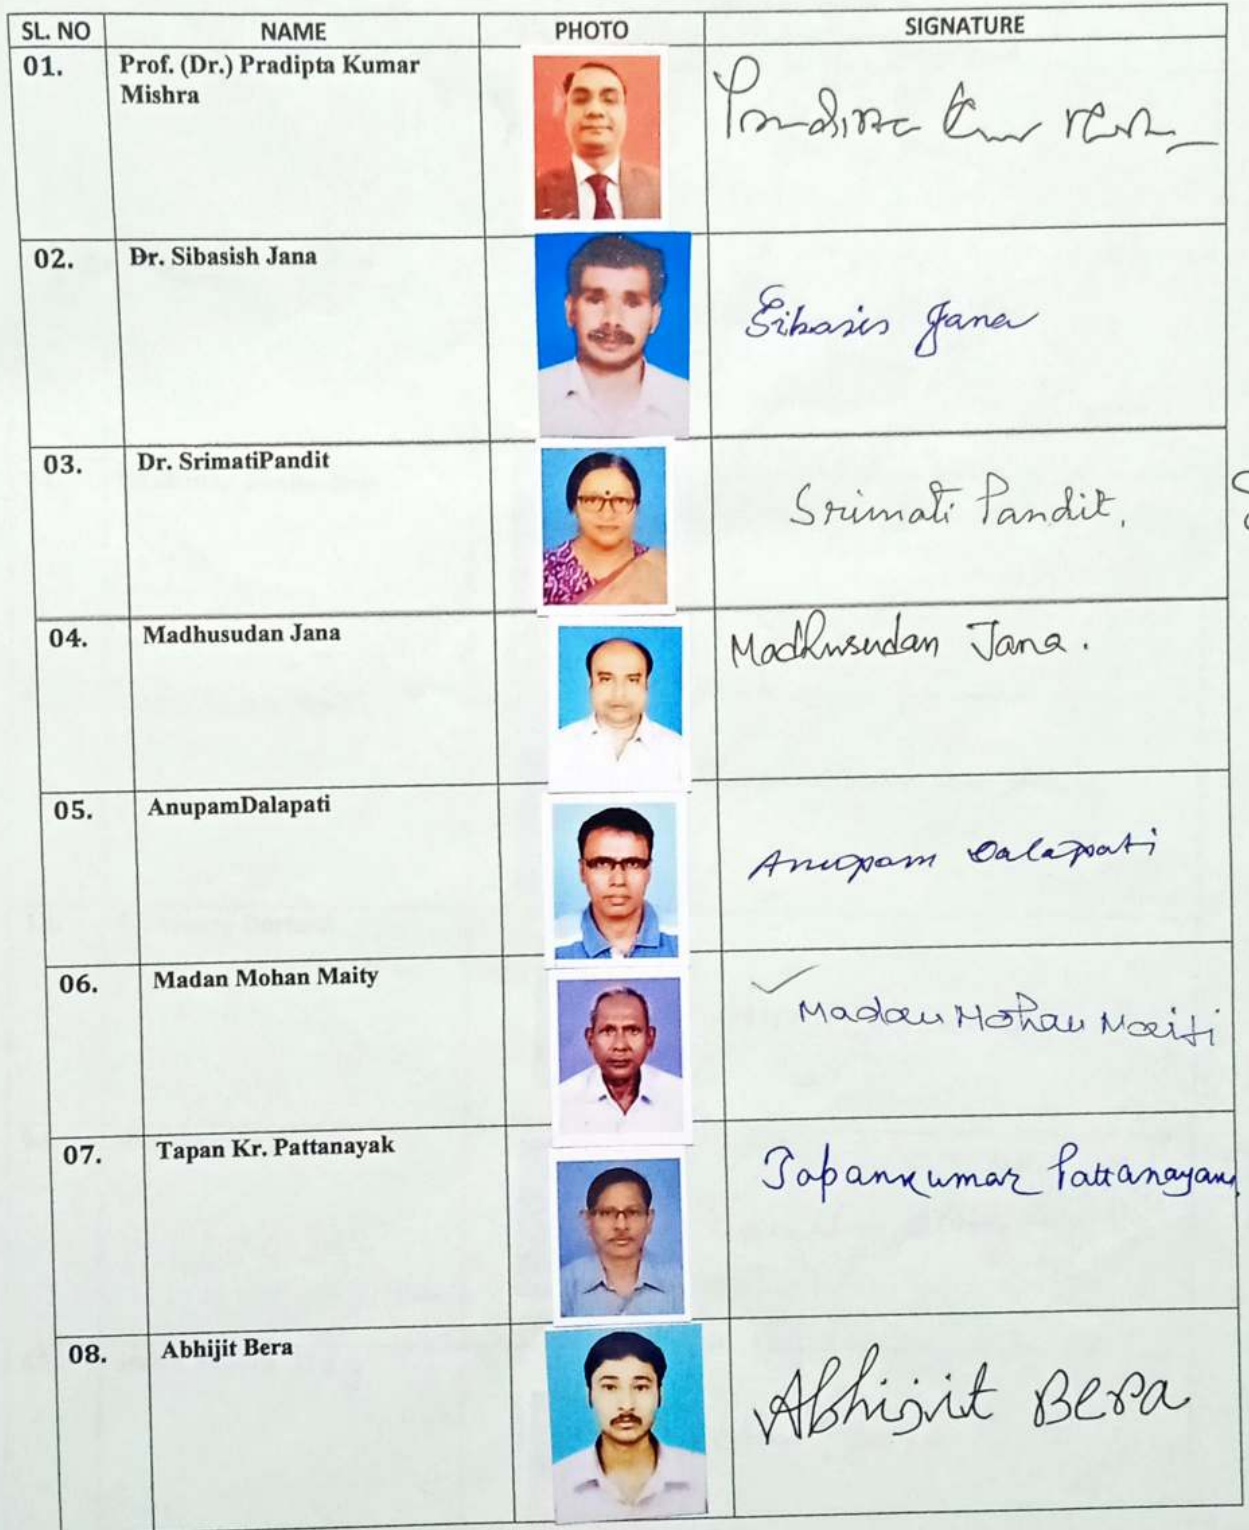 SL. NO NAME PHOTO SIGNATURE
01. Prof. (Dr.) Pradipta Kumar
Mishra
02. Dr. Sibasish Jana
Sibasis Jana
03. Dr. SrimatiPandit
Srimati Pandit,
04. Madhusudan Jana
Madhusudan Jana.
05. AnupamDalapati
Anupam Dalapati
06. Madan Mohan Maity
Madan Mohan Maiti
07. Tapan Kr. Pattanayak
Tapankumar Pattanayak
08. Abhijit Bera
Abhijit Bera